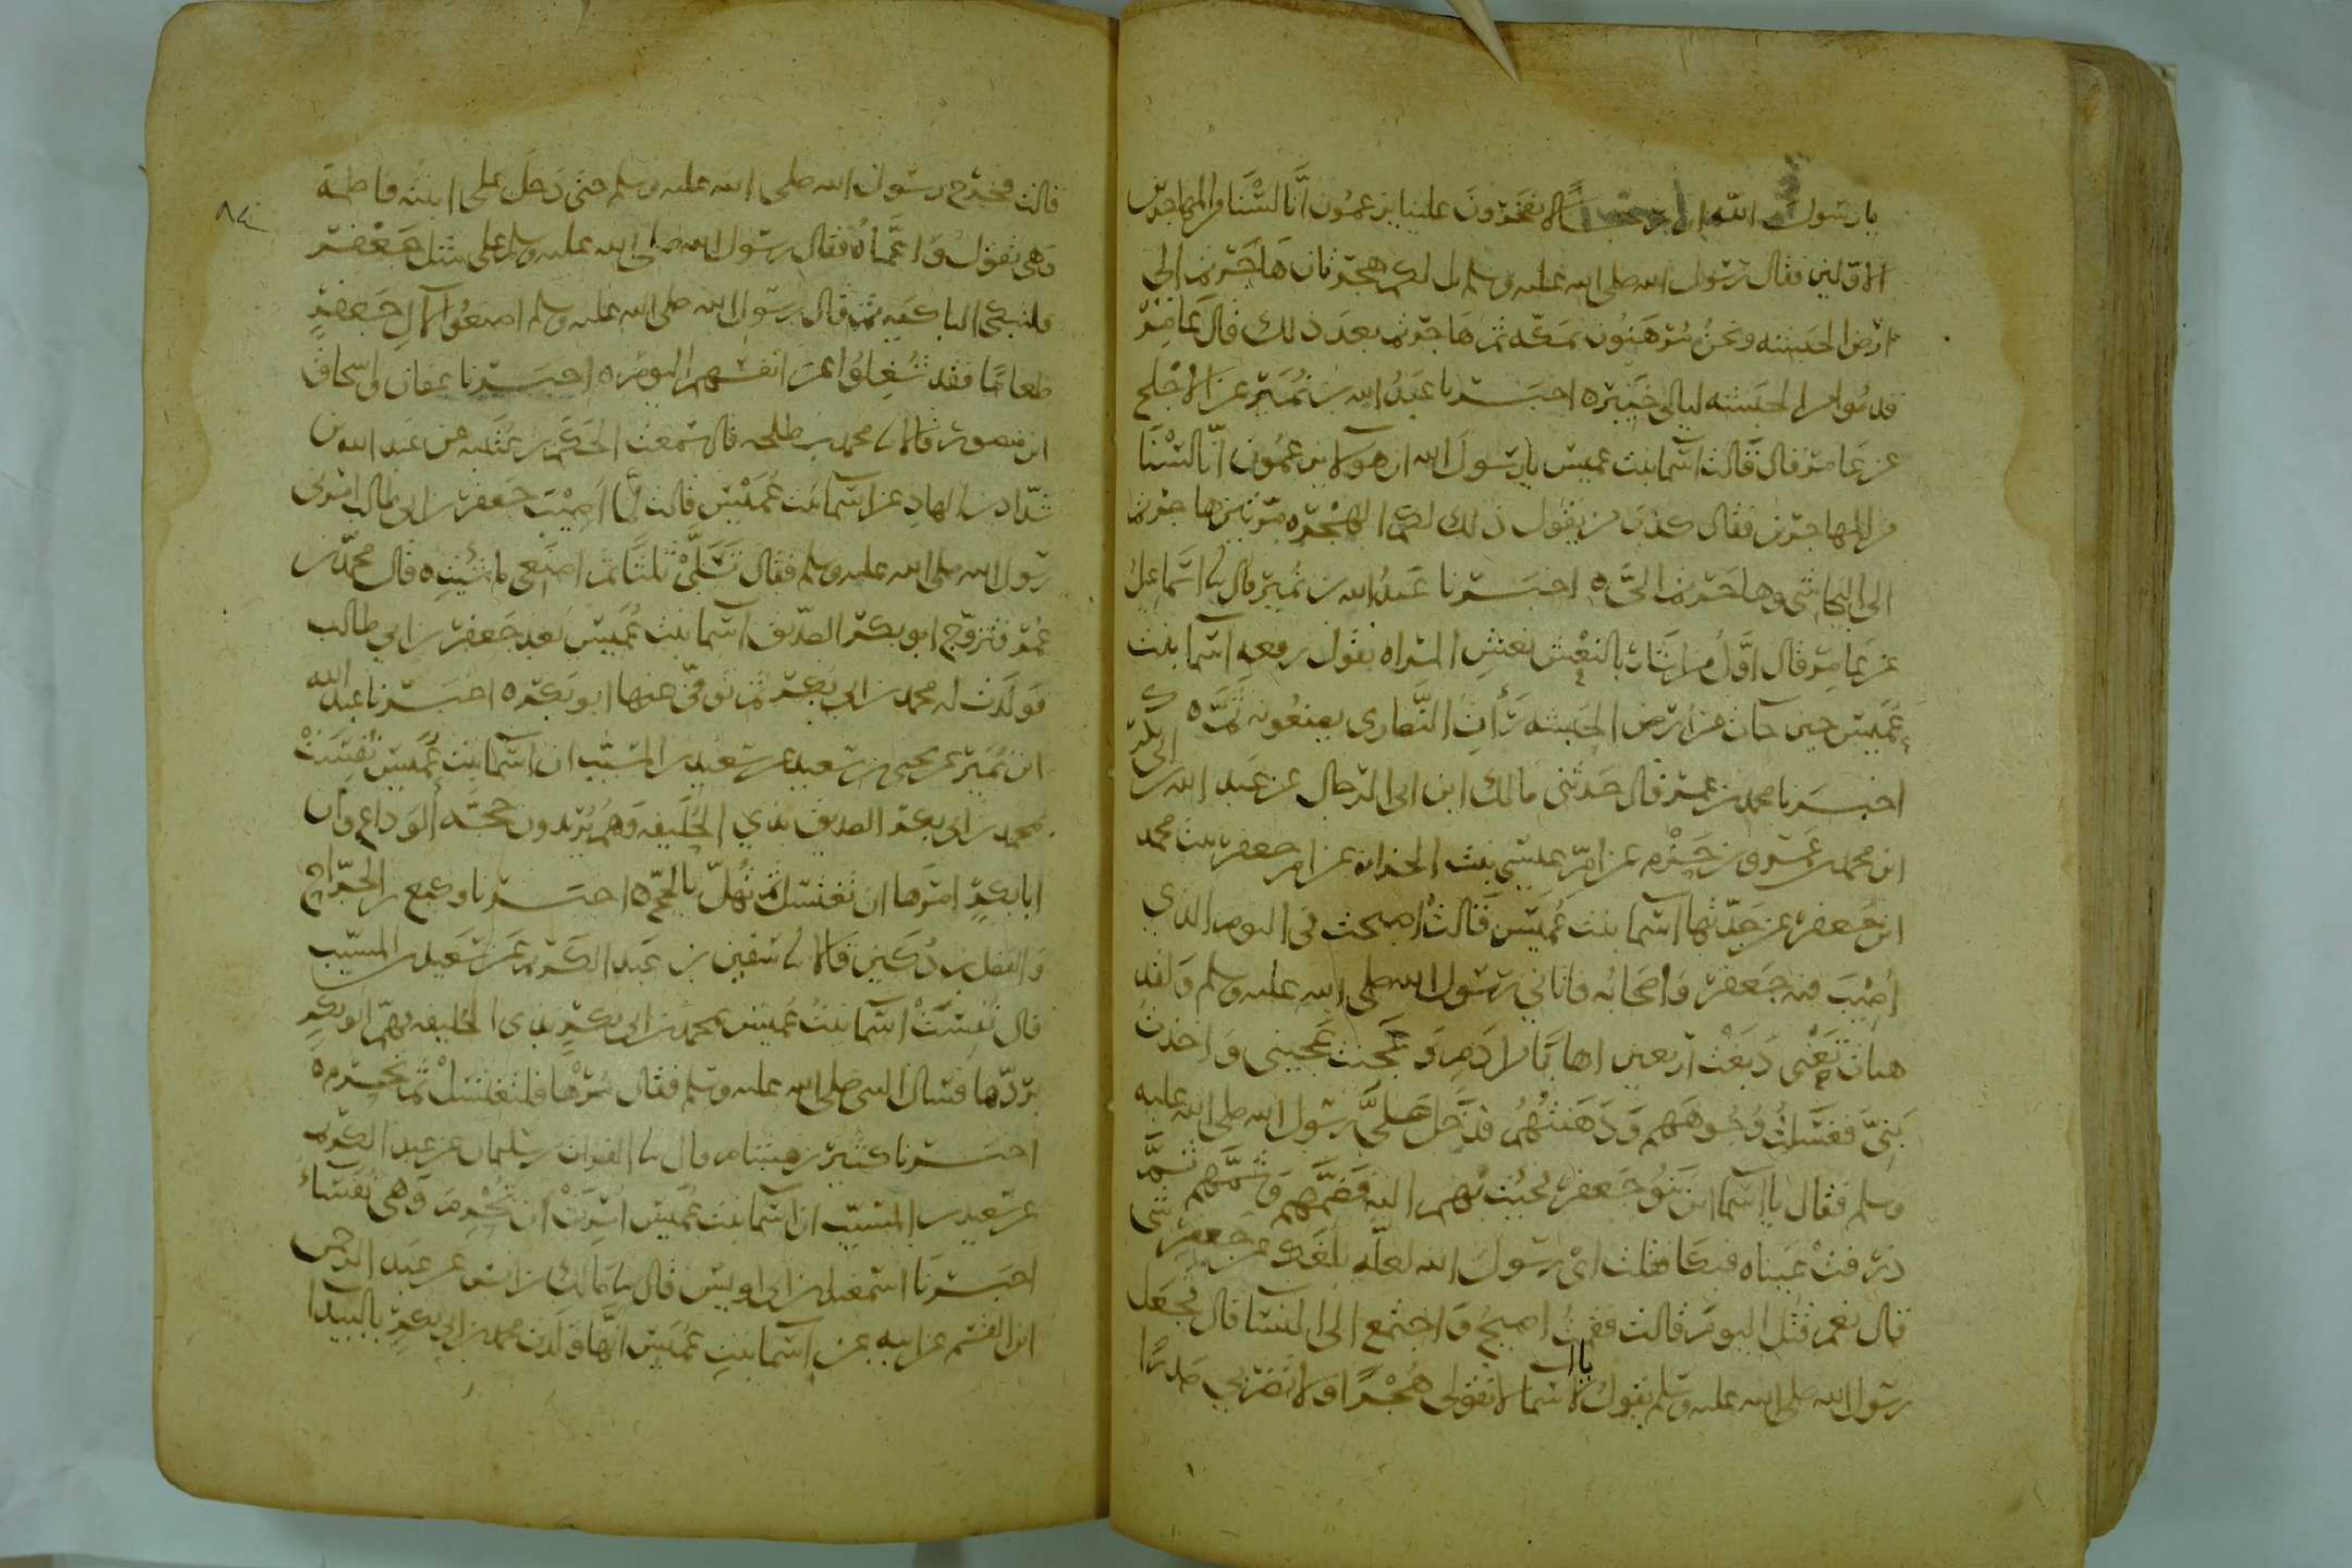 يا رسول الله ان رجالا يفخرون علينا يزعمون انا لسنا من المهاجرين
الاولين فقال رسول الله صلى الله عليه وسلم بل لكم هجرتان هاجرتم الى
ارض الحبشه ونحن مرهنون بمكه ثم هاجرتم بعد ذلك قال عامر
قدموا من الحبشه ليالي خيبر ه اخبرنا عبد الله بن نمير عن الاجلح
عن عامر قال قالت اسما بنت عميس يا رسول الله ان هولا يزعمون انا لسنا
من المهاجرين فقال كذب من يقول ذلك لكم الهجره مرتين هاجرتم
الى النجاشي وهاجرتم الي ه اخبرنا عبد الله بن نمير قال نا اسماعيل
عن عامر قال اول من اشار بالنعش نعش المراه يقول رفعه اسما بنت
عميس حين جات من ارض الحبشه رات النصارى يصنعونه ثم ه
اخبرنا محمد بن عمر قال حدثني مالك ابن ابي الرجال عن عبد الله بن ابي بكر
ابن محمد بن عمرو بن حزم عن ام عيسى بنت الجزار عن ام جعفر بنت محمد
ابن جعفر عن جدتها اسما بنت عميس قالت اصبحت في اليوم الذي
اصيب فيه جعفر واصحابه فاتاني رسول الله صلى الله عليه وسلم ولقد
هنات يعني دبغت اربعين اهابا من ادم وعجنت عجيني واخذت
بني فغسلت وجوههم ودهنتهم فدخل علي رسول الله صلى الله عليه
وسلم فقال يا اسما اين بنو جعفر فجيت بهم اليه فضمهم وشمهم ثم
ذرفت عيناه فبكا فقلت اي رسول الله لعله بلغك عن جعفر شي
قال نعم قتل اليوم قالت فقمت اصيح واجتمع الي النسا قال فجعل
رسول الله صلى الله عليه وسلم يقول يا اسما لا تقولي هجرا ولا تضربي صدرا
قالت فخرج رسول الله صلى الله عليه وسلم حتى دخل على ابنته فاطمة
وهي تقول وا عماه فقال رسول الله صلى الله عليه وسلم على مثل جعفر
فلتبكي الباكيه ثم قال رسول الله صلى الله عليه وسلم اصنعوا لال جعفر
طعاما فقد شغلوا عن انفسهم اليوم ه اخبرنا عفان واسحاق
ابن منصور قالا نا محمد بن طلحه قال سمعت الحكم بن عتيبه عن عبد الله بن
شداد بن الهاد عن اسما بنت عميس قالت لما اصيب جعفر بن ابي طالب امرني
رسول الله صلى الله عليه وسلم فقال تسلي ثلثا ثم اصنعي ما شيت ه قال محمد بن
عمر فتزوج ابو بكر الصديق اسما بنت عميس بعد جعفر بن ابي طالب
فولدت له محمد بن ابي بكر ثم توفي عنها ابو بكر ه اخبرنا عبد الله
ابن نمير عن يحيى بن سعيد عن سعيد بن المسيب ان اسما بنت عميس نفست
بمحمد بن ابي بكر الصديق بذي الحليفه وهم يريدون حجه الوداع وان
ابا بكر امرها ان تغتسل ثم تهل بالحج ه اخبرنا وكيع بن الجراح
والفضل بن دكين قالا نا سفين عن عبد الكريم عن سعيد بن المسيب
قال نفست اسما بنت عميس بمحمد بن ابي بكر بذي الحليفه فهم ابو بكر
بردها فسال النبي صلى الله عليه وسلم فقال مرها فلتغتسل ثم تحرم ه
اخبرنا كثير بن هشام قال نا الفرات بن سلمان عن عبد الكريم
عن سعيد بن المسيب ان اسما بنت عميس امرت ان تحرم وهي نفساء
اخبرنا اسمعيل بن ابي اويس قال نا مالك بن انس عن عبد الرحمن
ابن القسم عن ابيه عن اسما بنت عميس انها ولدت محمد بن ابي بكر بالبيدا